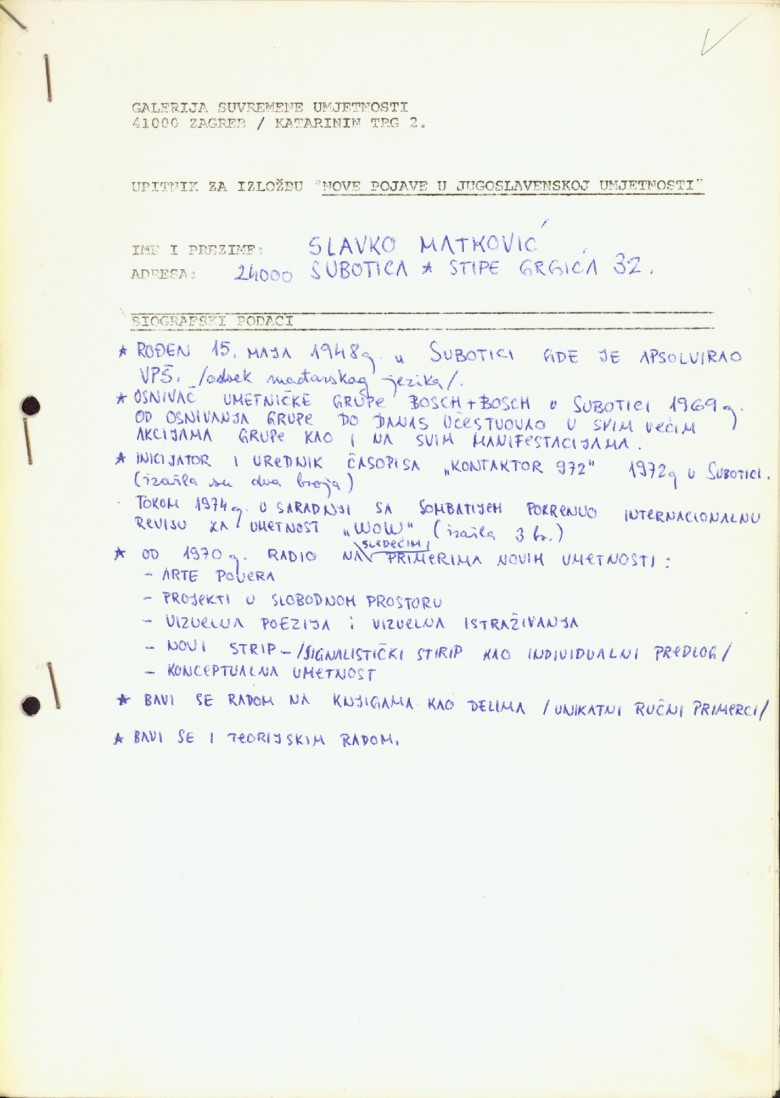 GALERIJA SUVREMENE UMJETNOSTI
41000 ZAGREB / KATARININ TRG 2.
UPITNIK ZA IZLOŽBU "NOVE POJAVE U JUGOSLAVENSKOJ UMJETNOSTI"
IME I PREZIME: SLAVKO MATKOVIĆ
ADRESA: 24000 SUBOTICA * STIPE GRGIĆA 32.
BIOGRAFSKI PODACI
* ROĐEN 15. MAJA 1948g. u SUBOTICI GDE JE APSOLVIRAO
VPŠ. /odsek mađarskog jezika/.
* OSNIVAČ UMETNIČKE GRUPE BOSCH+BOSCH U SUBOTICI 1969g.
OD OSNIVANJA GRUPE DO DANAS UČESTVOVAO U SVIM VEĆIM
AKCIJAMA GRUPE KAO I NA SVIM MANIFESTACIJAMA.
* INICIJATOR I UREDNIK ČASOPISA „KONTAKTOR 972" 1972g U SUBOTICI.
(izašla su dva broja)
TOKOM 1974g. U SARADNJI SA SOMBATIJEM POKRENUO INTERNACIONALNU
REVIJU ZA UMETNOST „WOW" (izašla 3 br.)
* OD 1970g. RADIO NA SLEDEĆIM PRIMERIMA NOVIH UMETNOSTI:
- ARTE POVERA
- PROJEKTI U SLOBODNOM PROSTORU
- VIZUELNA POEZIJA I VIZUELNA ISTRAŽIVANJA
- NOVI STRIP - /SIGNALISTIČKI STIRIP KAO INDIVIDUALNI PREDLOG/
- KONCEPTUALNA UMETNOST
* BAVI SE RADOM NA KNJIGAMA KAO DELIMA /UNIKATNI RUČNI PRIMERCI/
* BAVI SE I TEORIJSKIM RADOM.